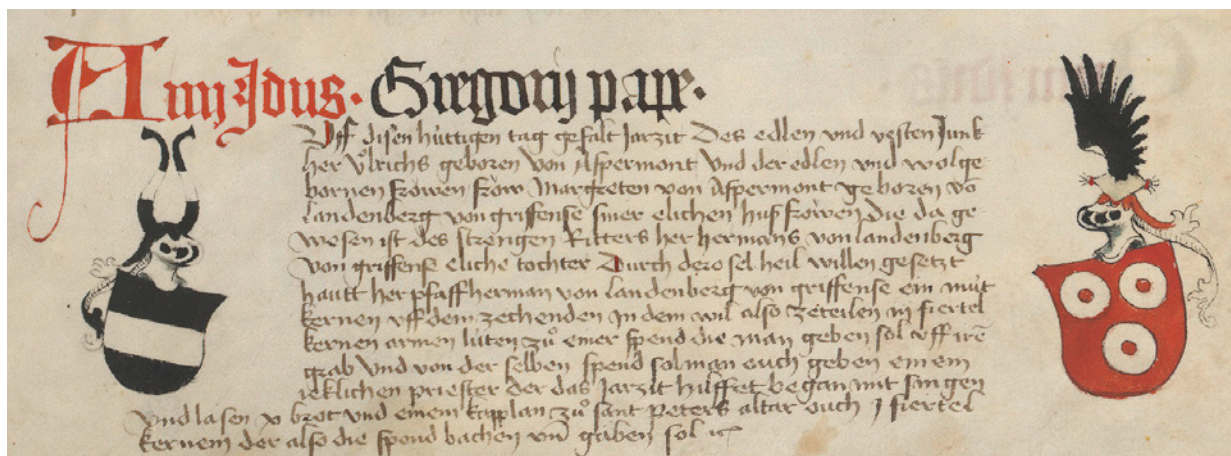 A iiij Idus. Gregorij pape.
Uff disen hüttigen tag gefalt Jarzit Des edlen vnd vesten Junk
her vͦlrichs geboren von Aspermont Und der edlen vnd wolge
bornen frowen frow Margreten von Aspermont geboren vō
landenberg von griffense siner elichen husfrowen Die da ge
wesen ist des strengen Ritters her hermans von landenberg
von griffense eliche tochter Durch dero sel heil willen gesetzt
hautt her pfaff herman von landenberg von griffense ein müt
kernen vff dem zechenden in dem wil also zeteilen iij fiertel
kernen armen lüten zuͦ einer spend die man geben sol vff irē
grab Vnd von der selben spend sol man ouch geben einem
ieklichen priester der das Jarzit hilffet began mit singen
vnd lasen v brot vnd einem kapplan zuͦ sant peters altar ouch j fiertel
kernem der also die spend bachen vnd gaben sol